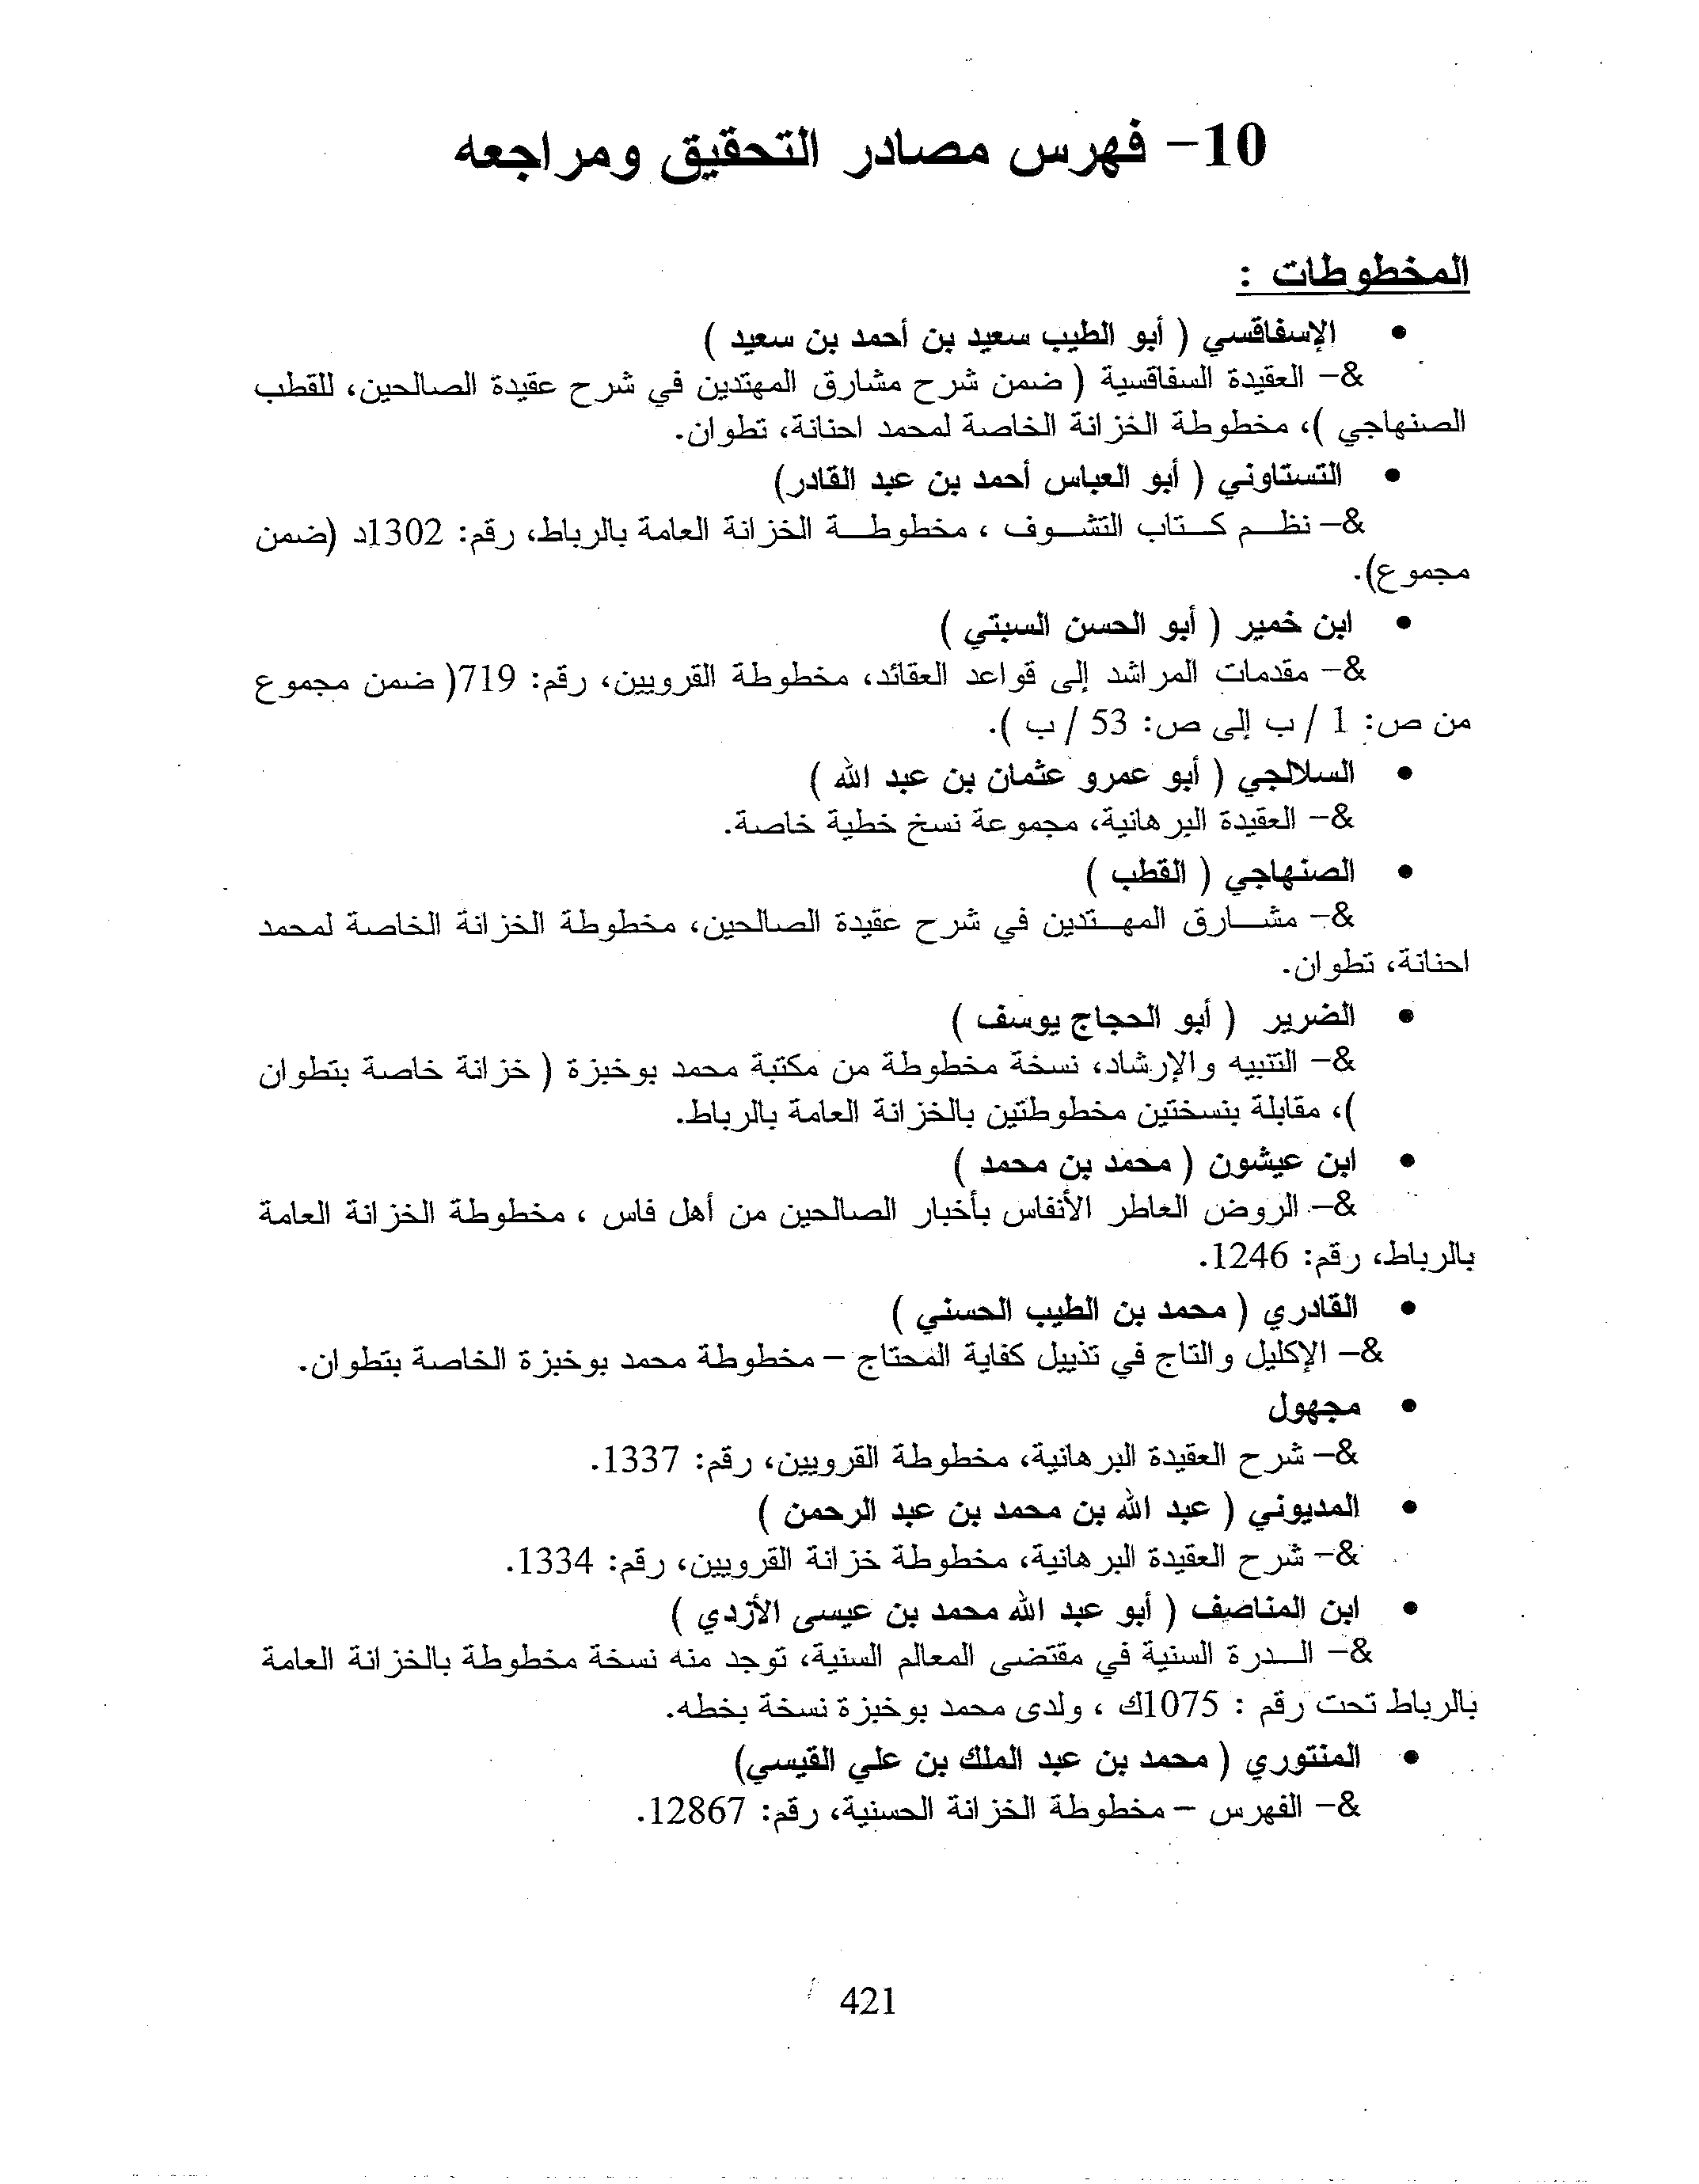 10- فهرس مصادر التحقيق ومراجعه
المخطوطات :
• الإسفاقسي ( أبو الطيب سعيد بن أحمد بن سعيد )
&- العقيدة السفاقسية ( ضمن شرح مشارق المهتدين في شرح عقيدة الصالحين، للقطب
الصنهاجي )، مخطوطة الخزانة الخاصة لمحمد احنانة، تطوان.
• التستاوني ( أبو العباس أحمد بن عبد القادر)
&- نظـم كـتاب التشـوف ، مخطوطـة الخزانة العامة بالرباط، رقم: 1302د (ضمن
مجموع).
• ابن خمير ( أبو الحسن السبتي )
&- مقدمات المراشد إلى قواعد العقائد، مخطوطة القرويين، رقم: 719( ضمن مجموع
من ص: 1 / ب إلى ص: 53 / ب ).
• السلالجي ( أبو عمرو عثمان بن عبد الله )
&- العقيدة البرهانية، مجموعة نسخ خطية خاصة.
• الصنهاجي ( القطب )
&- مشـارق المهـتدين في شرح عقيدة الصالحين، مخطوطة الخزانة الخاصة لمحمد
احنانة، تطوان.
• الضرير ( أبو الحجاج يوسف )
&- التنبيه والإرشاد، نسخة مخطوطة من مكتبة محمد بوخبزة ( خزانة خاصة بتطوان
)، مقابلة بنسختين مخطوطتين بالخزانة العامة بالرباط.
• ابن عيشون ( محمد بن محمد )
&- الروض العاطر الأنفاس بأخبار الصالحين من أهل فاس ، مخطوطة الخزانة العامة
بالرباط، رقم: 1246.
• القادري ( محمد بن الطيب الحسني )
&- الإكليل والتاج في تذييل كفاية المحتاج – مخطوطة محمد بوخبزة الخاصة بتطوان.
• مجهول
&- شرح العقيدة البرهانية، مخطوطة القرويين، رقم: 1337.
• المديوني ( عبد الله بن محمد بن عبد الرحمن )
&- شرح العقيدة البرهانية، مخطوطة خزانة القرويين، رقم: 1334.
• ابن المناصف ( أبو عبد الله محمد بن عيسى الأزدي )
&- الـدرة السنية في مقتضى المعالم السنية، توجد منه نسخة مخطوطة بالخزانة العامة
بالرباط تحت رقم : 1075ك ، ولدى محمد بوخبزة نسخة بخطه.
• المنتوري ( محمد بن عبد الملك بن علي القيسي)
&- الفهرس – مخطوطة الخزانة الحسنية، رقم: 12867.
421